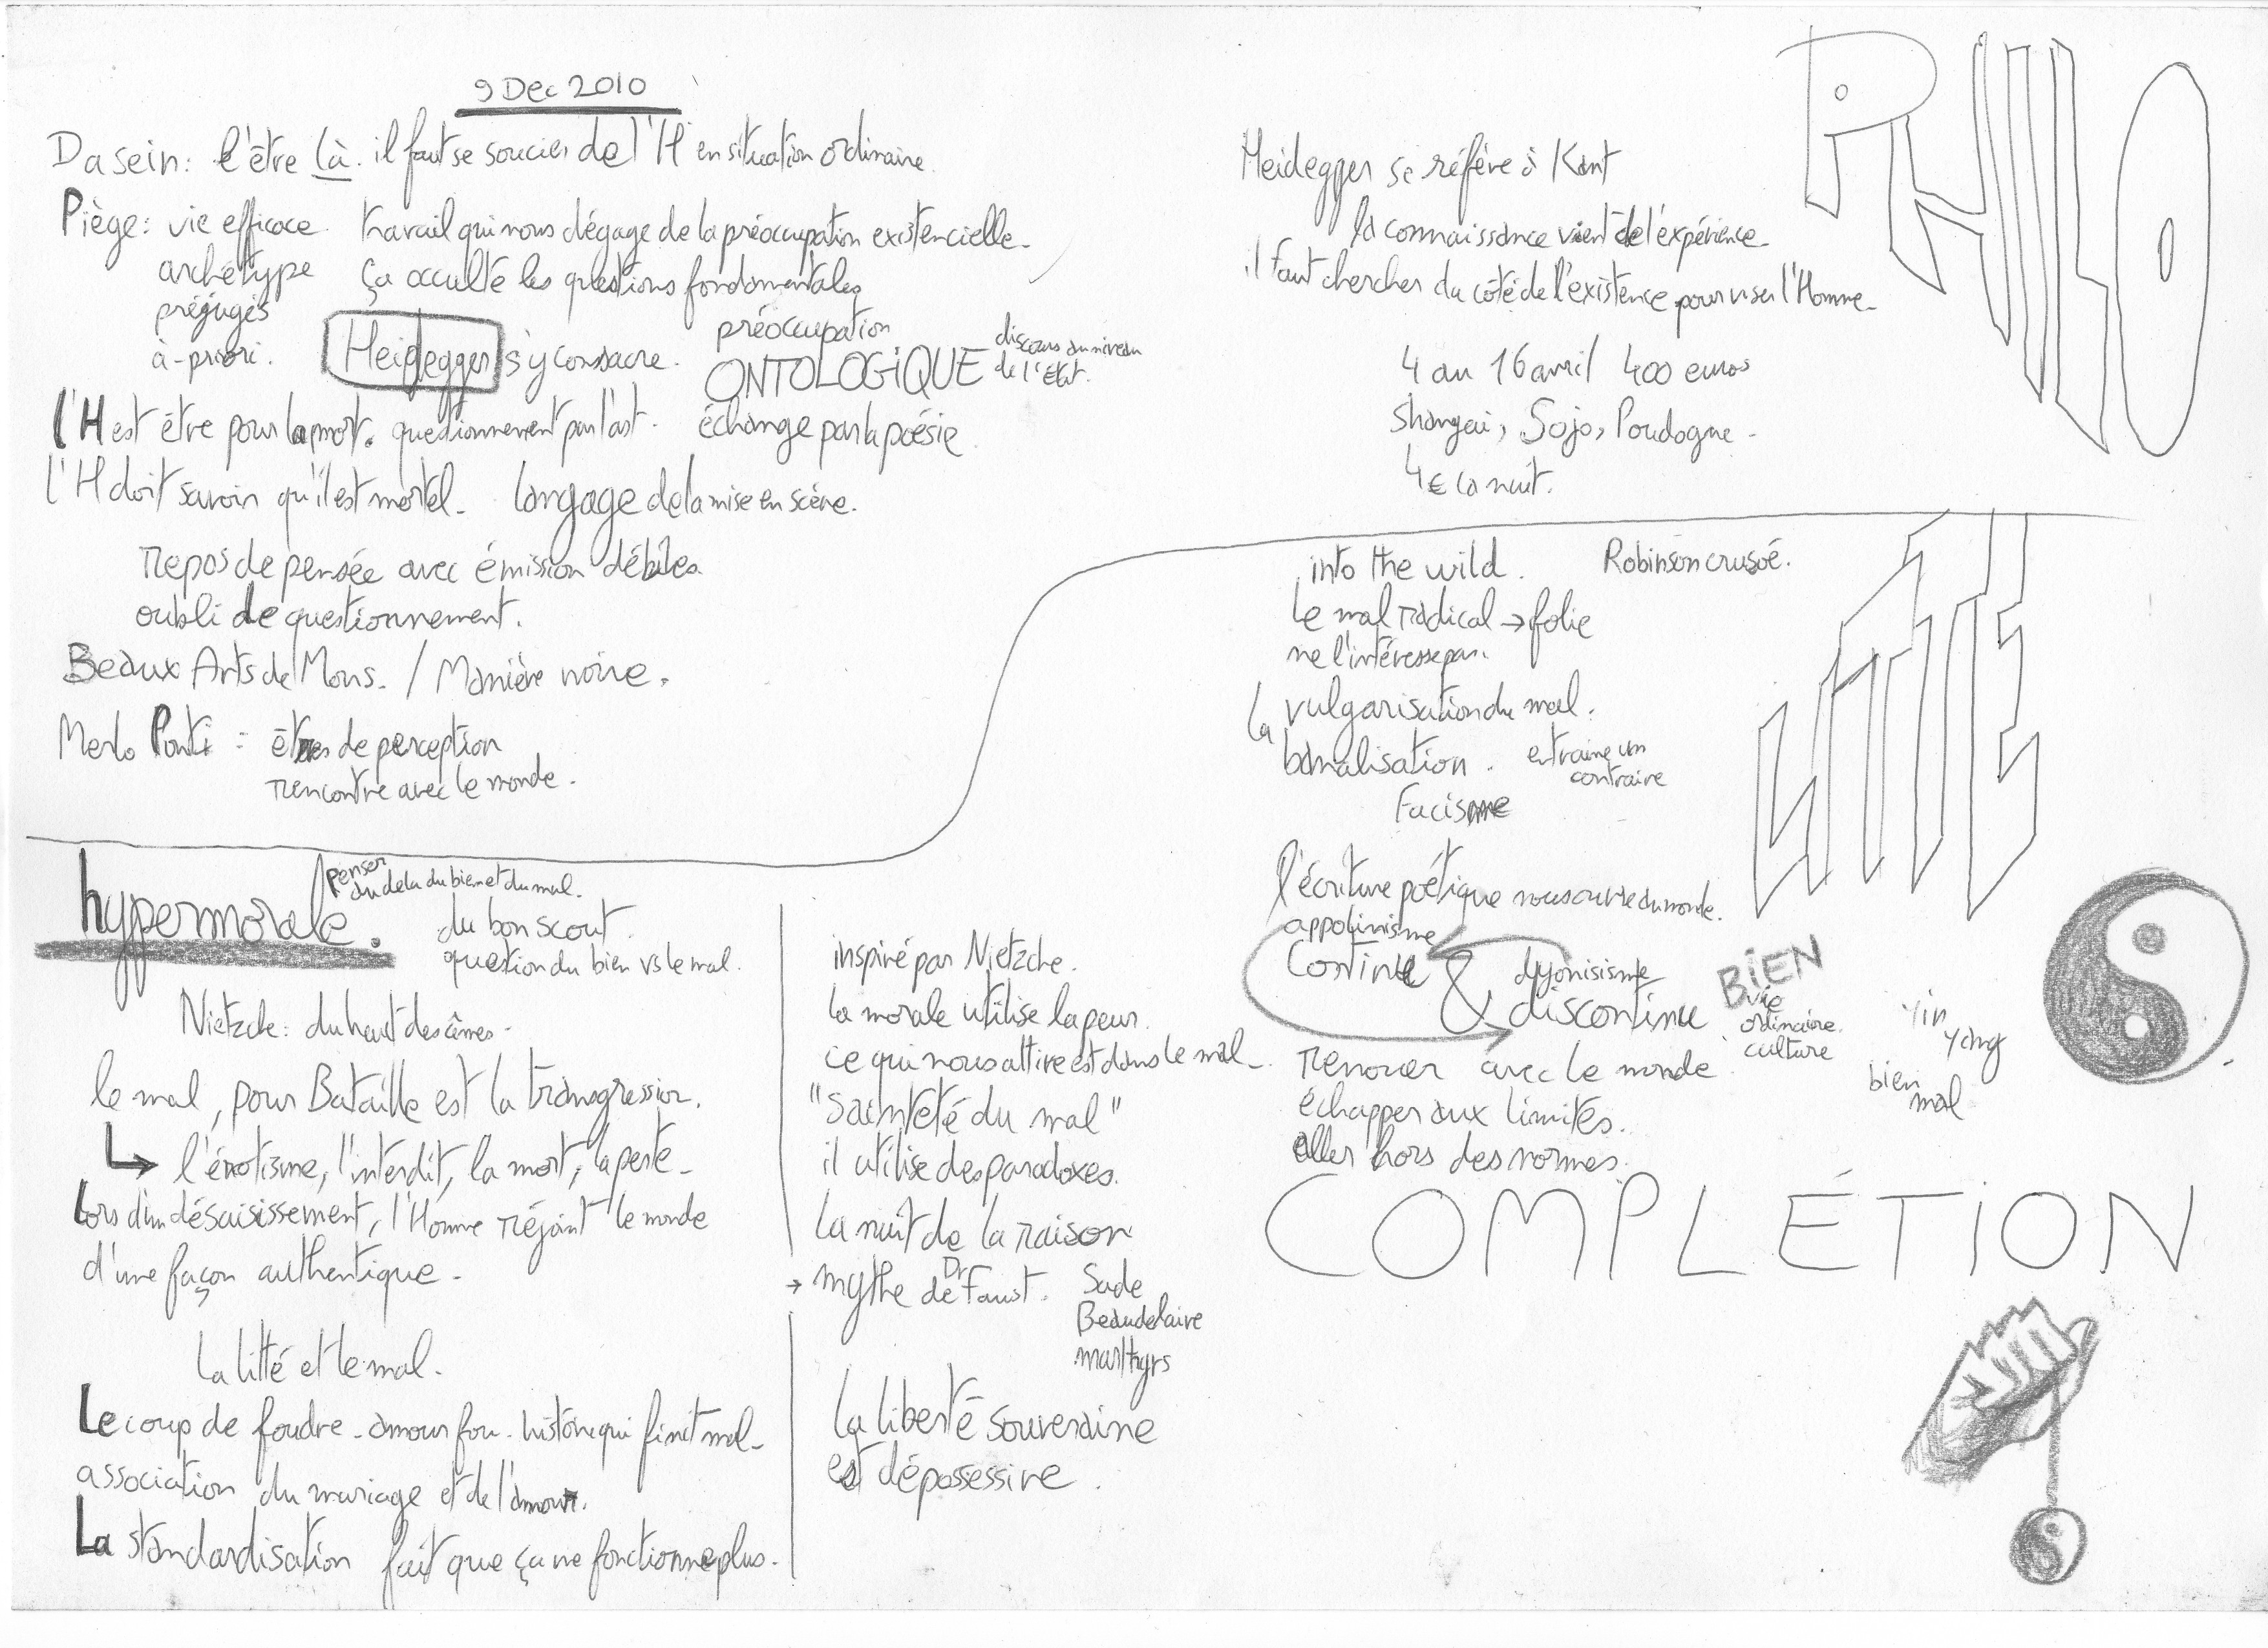 9 Dec 2010
Dasein: l'être là. il faut se soucier de l'H en situation ordinaire.
Piège: vie efficace. travail qui nous dégage de la préoccupation existencielle.
archétype ça occulte les questions fondamentales
préjugés
à-priori. Heidegger s'y consacre.
préoccupation
ONTOLOGiQUE discours au niveau
de l'État.
l'H est être pour la mort. questionnement par l'art. échange par la poésie.
l'H doit savoir qu'il est mortel. langage de la mise en scène.
repos de pensée avec émission débiles.
oubli de questionnement.
Beaux Arts de Mons. / Manière noire.
Merlo Ponti : êtres de perception
rencontre avec le monde.
PHILO
Heidegger se réfère à Kant
la connaissance vient de l'expérience.
il faut chercher du côté de l'existence pour viser l'Homme.
4 au 16 avril 400 euros
Shangai, Sojo, Poudogne.
4€ la nuit.
hypermorale.
penser
au dela du bien et du mal.
du bon scout.
question du bien vs le mal.
Nietzche: du haut des âmes.
le mal, pour Bataille est la transgression.
↳ l'érotisme, l'interdit, la mort, la perte.
Lors d'un désaisissement, l'Homme réjoint le monde
d'une façon authentique.
La litté et le mal.
Le coup de foudre. amour fou. histoire qui finit mal.
association du mariage et de l'amour.
La standardisation fait que ça ne fonctionne plus.
inspiré par Nietzche.
la morale utilise la peur.
ce qui nous attire est dans le mal.
"Sainteté du mal"
il utilise des paradoxes.
la nuit de la raison
→ mythe de Dr Faust. Sade
Beaudelaire
marthyrs
la liberté souveraine
est dépossessive.
LITTE
into the wild. Robinson crusoé.
le mal radical → folie
ne l'intéresse pas.
la vulgarisation du mal.
banalisation. entraine un
contraire
Facisme
l'écriture poétique nous ouvre du monde.
appolinisme
Continue & dyonisisme
discontinue
BiEN
vie
ordinaire.
culture
yin
yang
bien
mal
renouer avec le monde
échapper aux limites.
aller hors des normes.
COMPLÉTION